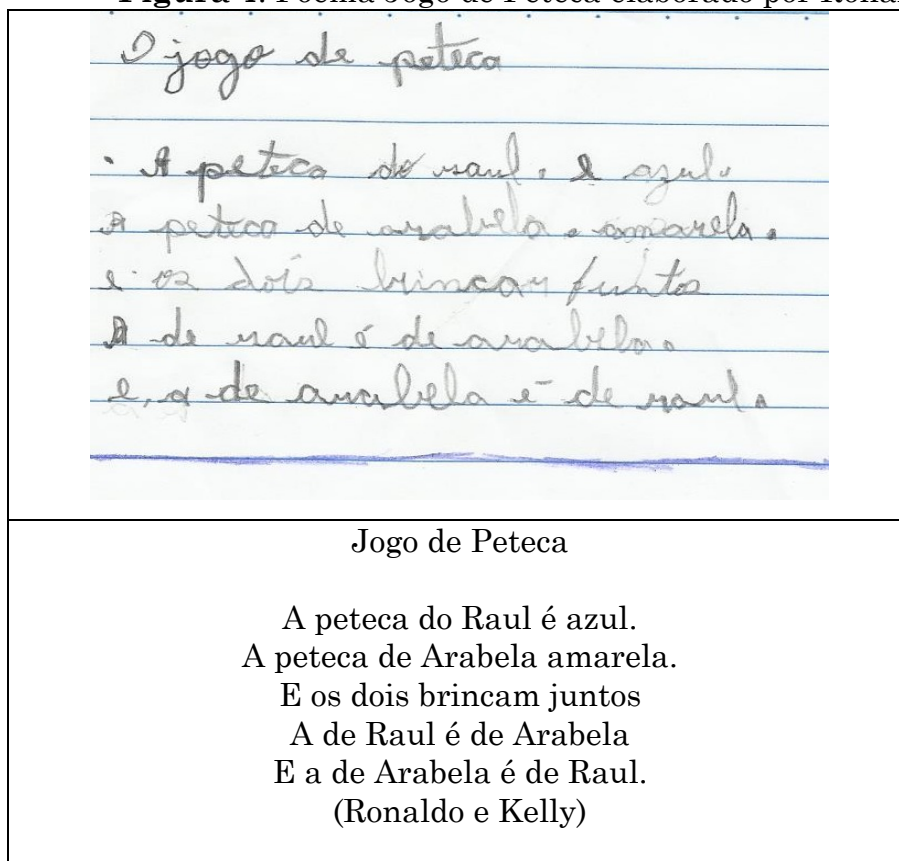 Figura 4. Poema Jogo de Peteca elaborado por Ronal
O jogo de peteca
. A peteca do raul. e azul.
A peteca de arabela. amarela.
e os dois brincam funtos
A de raul é de arabela.
e, a de arabela é de raul.
Jogo de Peteca
A peteca do Raul é azul.
A peteca de Arabela amarela.
E os dois brincam juntos
A de Raul é de Arabela
E a de Arabela é de Raul.
(Ronaldo e Kelly)